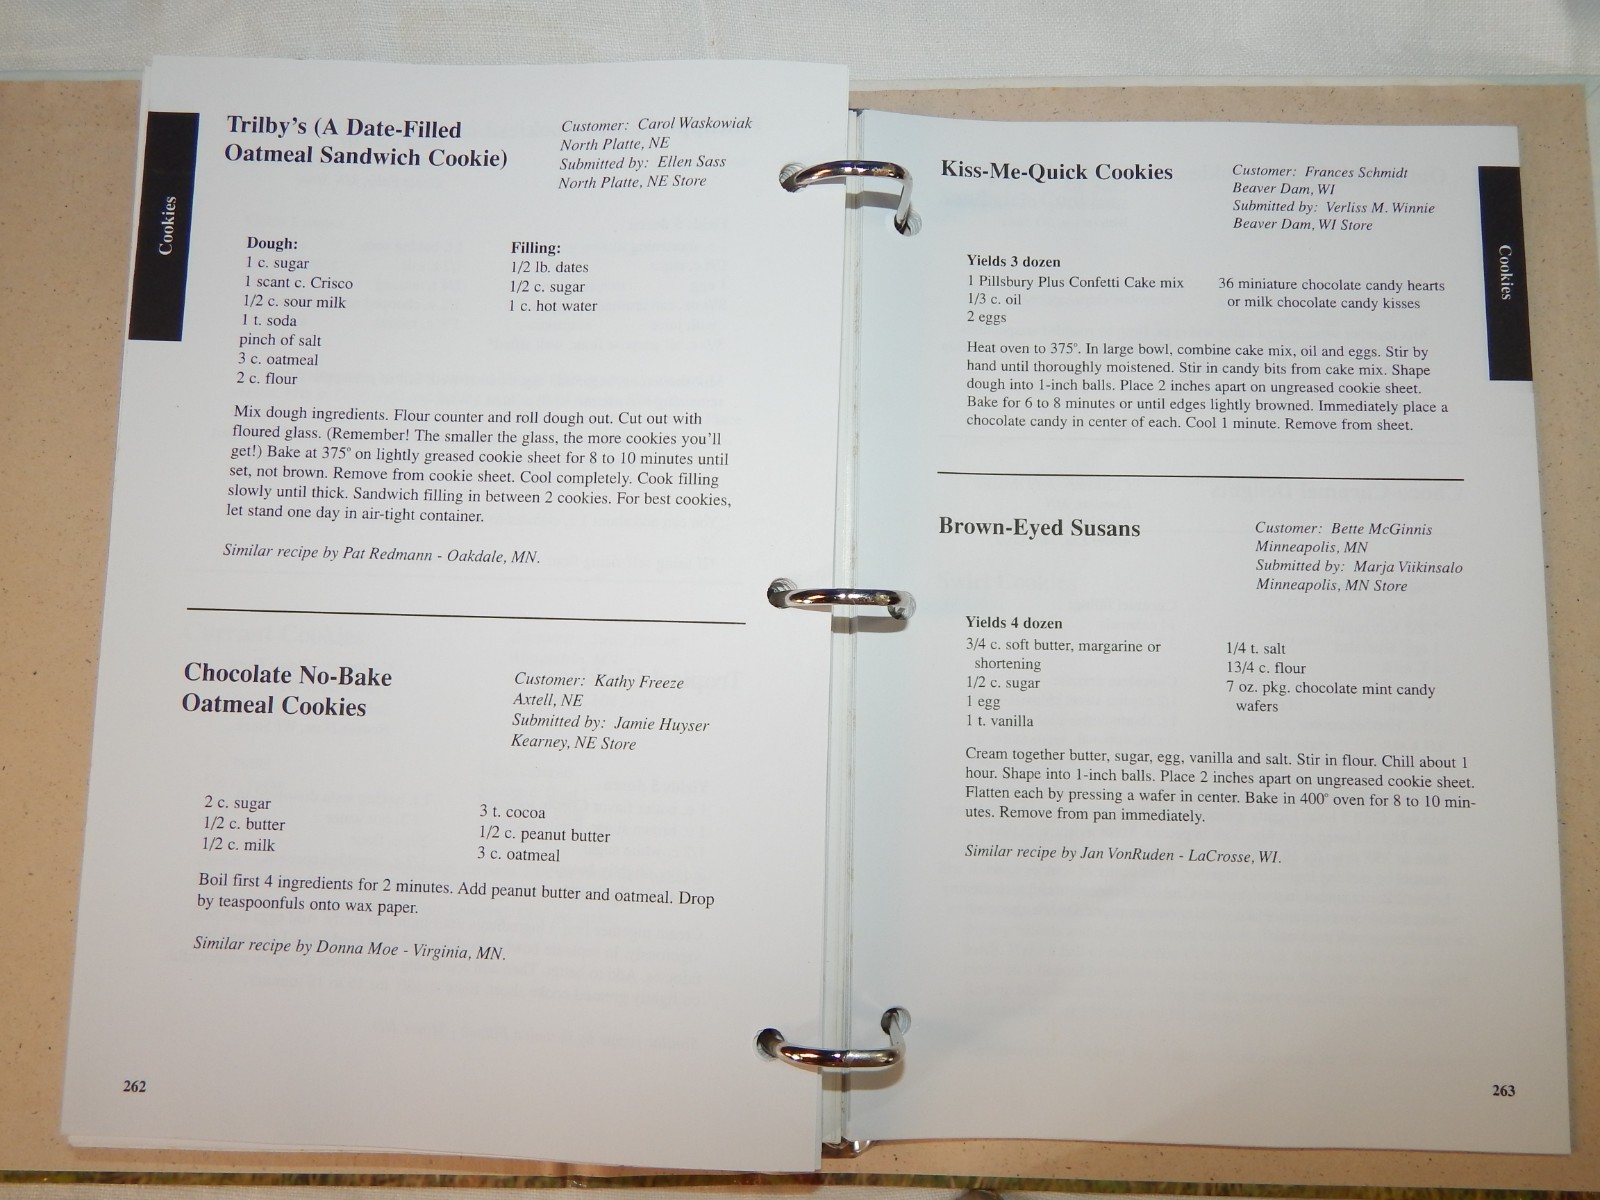 Cookies
Trilby's (A Date-Filled
Oatmeal Sandwich Cookie)
Customer: Carol Waskowiak
North Platte, NE
Submitted by: Ellen Sass
North Platte, NE Store
Dough:
1 c. sugar
1 scant c. Crisco
1/2 c. sour milk
1 t. soda
pinch of salt
3 c. oatmeal
2 c. flour
Filling:
1/2 lb. dates
1/2 c. sugar
1 c. hot water
Mix dough ingredients. Flour counter and roll dough out. Cut out with
floured glass. (Remember! The smaller the glass, the more cookies you'll
get!) Bake at 375º on lightly greased cookie sheet for 8 to 10 minutes until
set, not brown. Remove from cookie sheet. Cool completely. Cook filling
slowly until thick. Sandwich filling in between 2 cookies. For best cookies,
let stand one day in air-tight container.
Similar recipe by Pat Redmann - Oakdale, MN.
Chocolate No-Bake
Oatmeal Cookies
Customer: Kathy Freeze
Axtell, NE
Submitted by: Jamie Huyser
Kearney, NE Store
2 c. sugar
1/2 c. butter
1/2 c. milk
3 t. cocoa
1/2 c. peanut butter
3 c. oatmeal
Boil first 4 ingredients for 2 minutes. Add peanut butter and oatmeal. Drop
by teaspoonfuls onto wax paper.
Similar recipe by Donna Moe - Virginia, MN.
262
Kiss-Me-Quick Cookies
Customer: Frances Schmidt
Beaver Dam, WI
Submitted by: Verliss M. Winnie
Beaver Dam, WI Store
Cookies
Yields 3 dozen
1 Pillsbury Plus Confetti Cake mix
1/3 c. oil
2 eggs
36 miniature chocolate candy hearts
or milk chocolate candy kisses
Heat oven to 375º. In large bowl, combine cake mix, oil and eggs. Stir by
hand until thoroughly moistened. Stir in candy bits from cake mix. Shape
dough into 1-inch balls. Place 2 inches apart on ungreased cookie sheet.
Bake for 6 to 8 minutes or until edges lightly browned. Immediately place a
chocolate candy in center of each. Cool 1 minute. Remove from sheet.
Brown-Eyed Susans
Customer: Bette McGinnis
Minneapolis, MN
Submitted by: Marja Viikinsalo
Minneapolis, MN Store
Yields 4 dozen
3/4 c. soft butter, margarine or
shortening
1/2 c. sugar
1 egg
1 t. vanilla
1/4 t. salt
13/4 c. flour
7 oz. pkg. chocolate mint candy
wafers
Cream together butter, sugar, egg, vanilla and salt. Stir in flour. Chill about 1
hour. Shape into 1-inch balls. Place 2 inches apart on ungreased cookie sheet.
Flatten each by pressing a wafer in center. Bake in 400º oven for 8 to 10 min-
utes. Remove from pan immediately.
Similar recipe by Jan VonRuden - LaCrosse, WI.
263